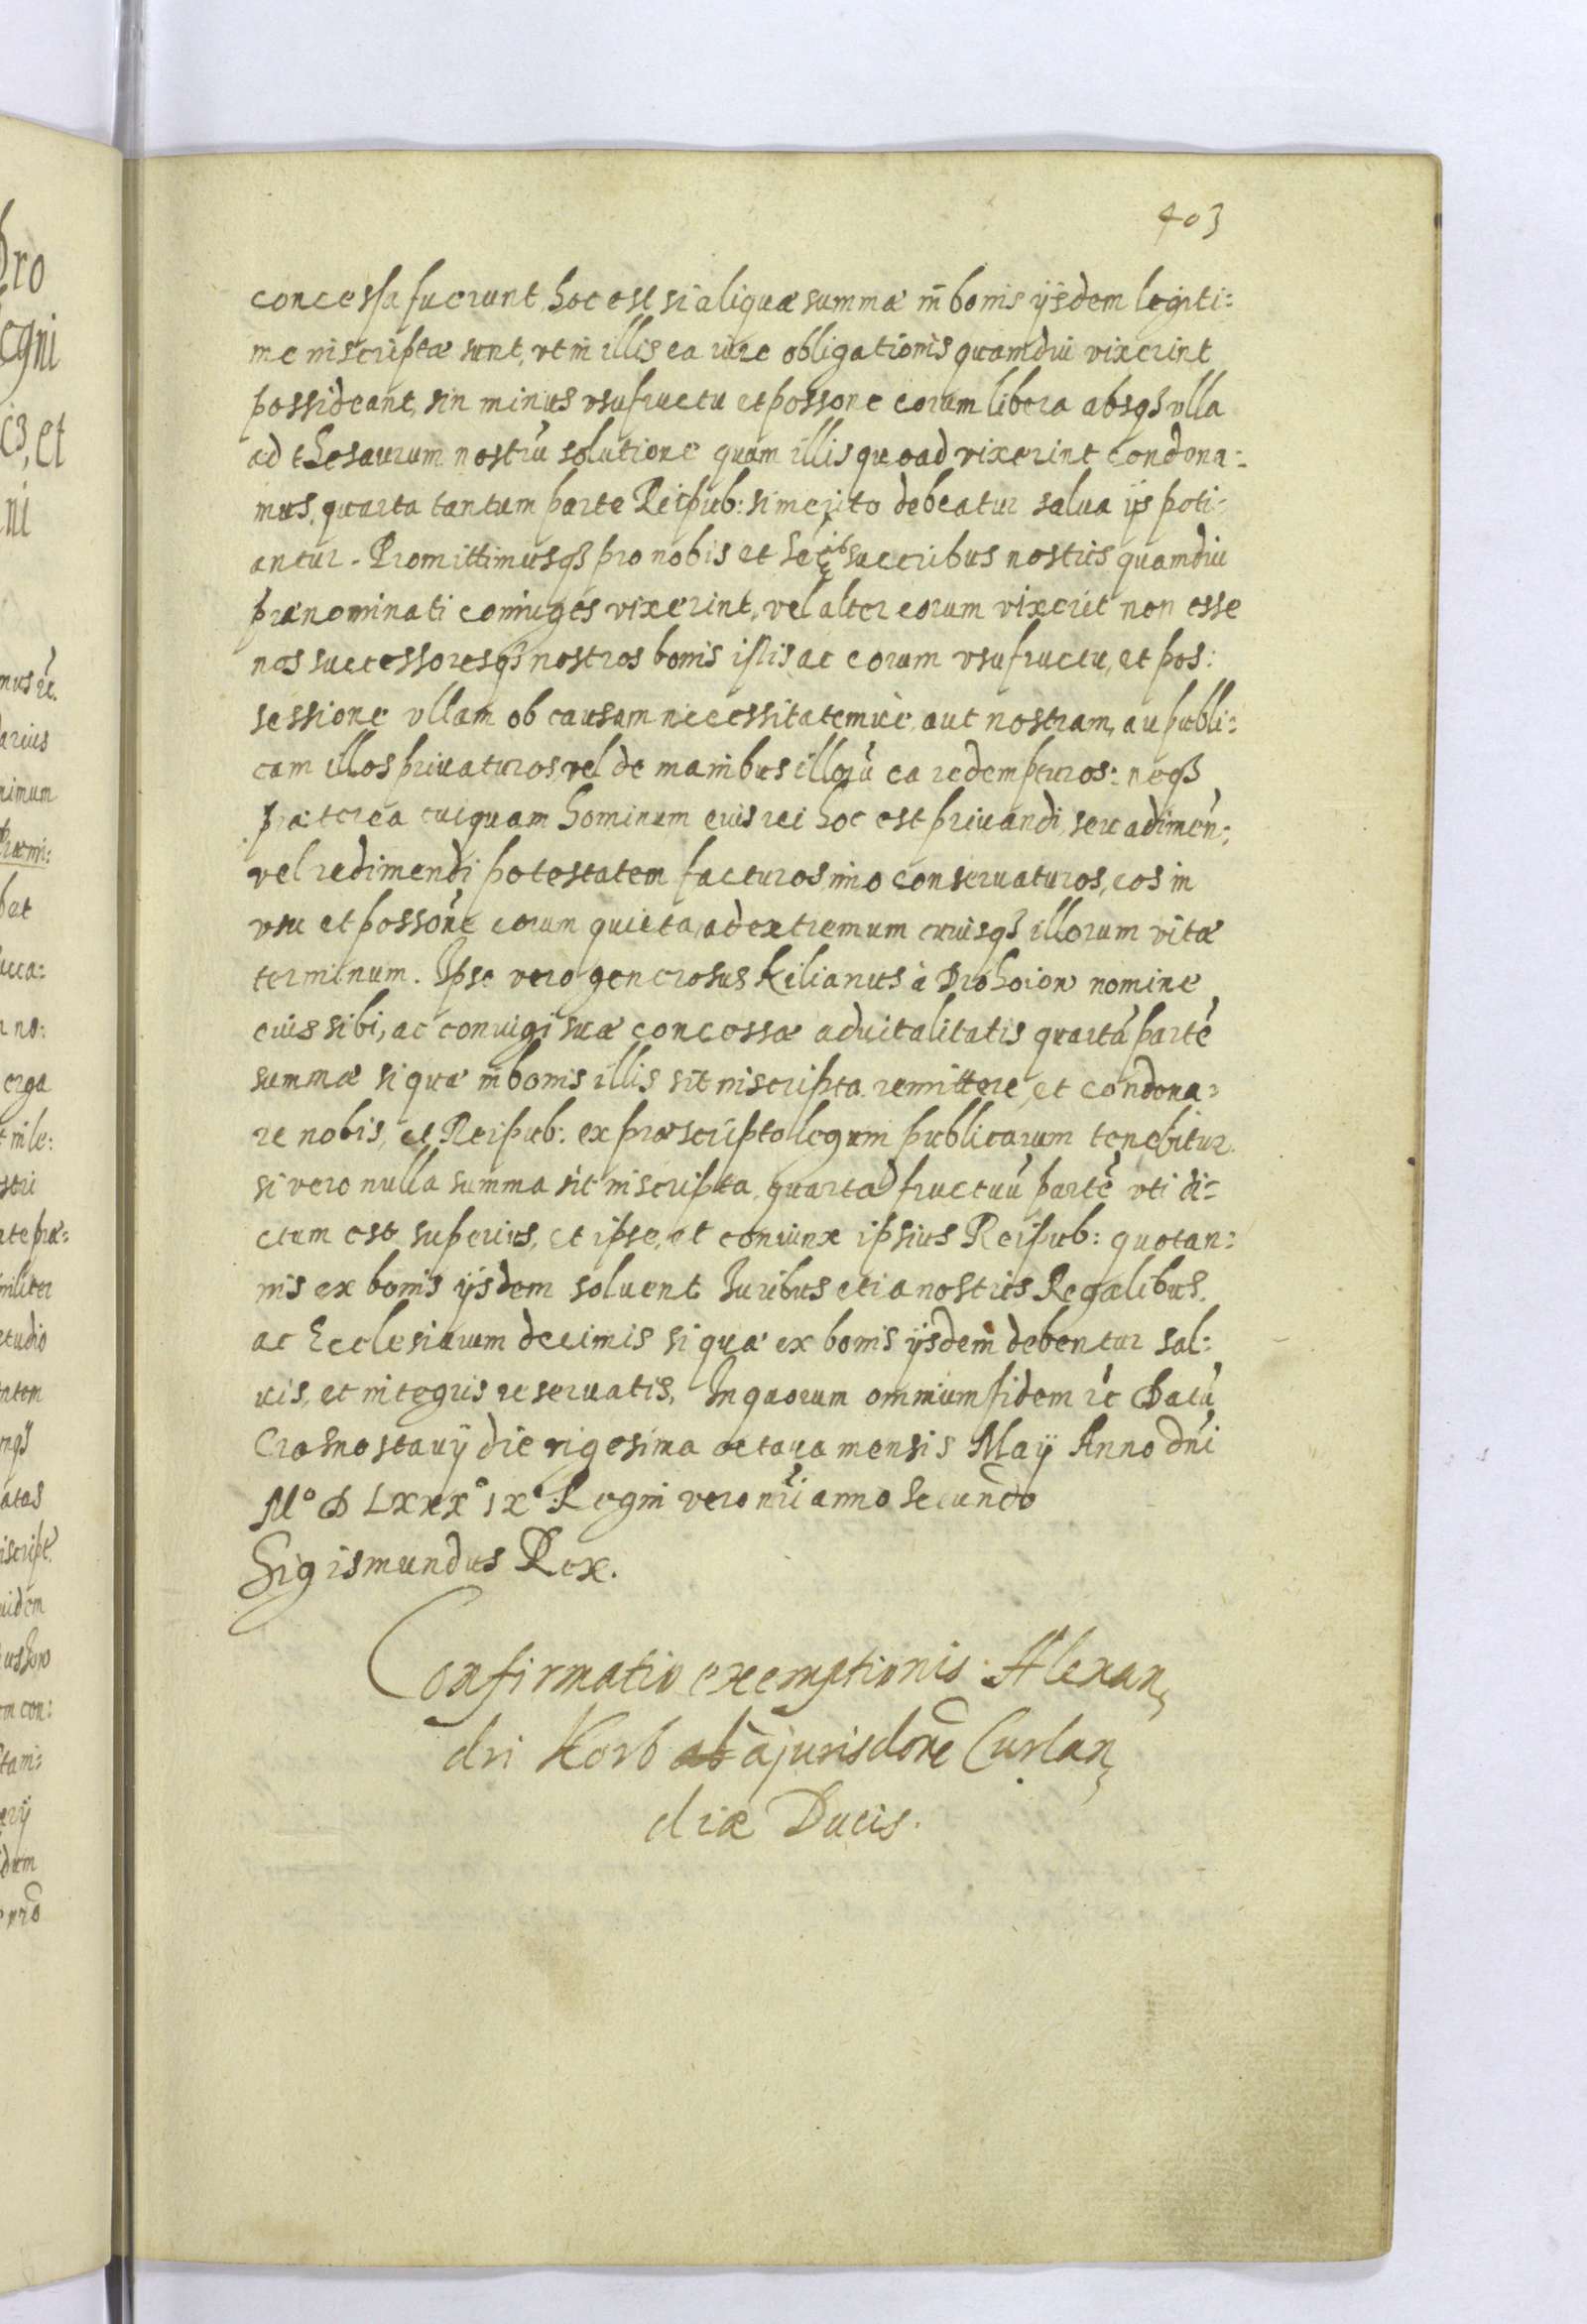 403
concessa fuerunt, hoc est si aliquæ summæ in bonis ijsdem legiti:
me inscriptæ sunt, vt in illis ea iure obligationis quamdiu vixerint
possideant, sin minus vsufructu et possone eorum libera absq3 vlla
ad thesaurum nostrū solutione quam illis quoad vixerint condona:
mus, quarta tantum parte Reipub: si merito debeatur salua ijs poti:
antur. Promittimusq3 pro nobis et succribus nostris quamdiu
prænominati coniuges vixerint, vel alter eorum vixerit non esse
nos successoresq3 nostros bonis istis ac eorum vsufructu, et pos:
sessione vllam ob causam necessitatemue, aut nostram, au publi:
cam illos priuaturos, vel de manibus illorū ea redempturos: neq3
præterea cuiquam hominum eius rei hoc est priuandi, seu adimen:
vel redimendi potestatem facturos, imo conseruaturos, eos in
vsu et possone eorum quieta, ad extremum cuiusq3 illorum vitæ
terminum. Ipse vero generosus Kilianus à Drohoion nomine
cuis sibi, ac coniugi suæ concessæ aduitalitatis quartā partē
summæ si quæ in bonis illis sit inscripta remittere, et condona:
re nobis, et Reipub: ex præscripto legum publicarum tenebitur.
si vero nulla summa sit inscripta, quartā fructuū partē vti di:
ctum est superius, et ipse, et coniunx ipsius Reipub: quotan:
nis ex bonis ijsdem soluent Iuribus etia nostris Regalibus.
ac Ecclesiarum decimis si quæ ex bonis ijsdem debentur sal:
uis, et integris reseruatis. In quorum omnium fidem rc Datū
Crasnostauij die vigesima octaua mensis Maij Anno dni
M° D LXXX° IX° Regni vero nri anno secundo
Sigismundus Rex.
Confirmatio exemptionis Alexan,
dri Korb ab à jurisdone Curlan,
diæ Ducis.